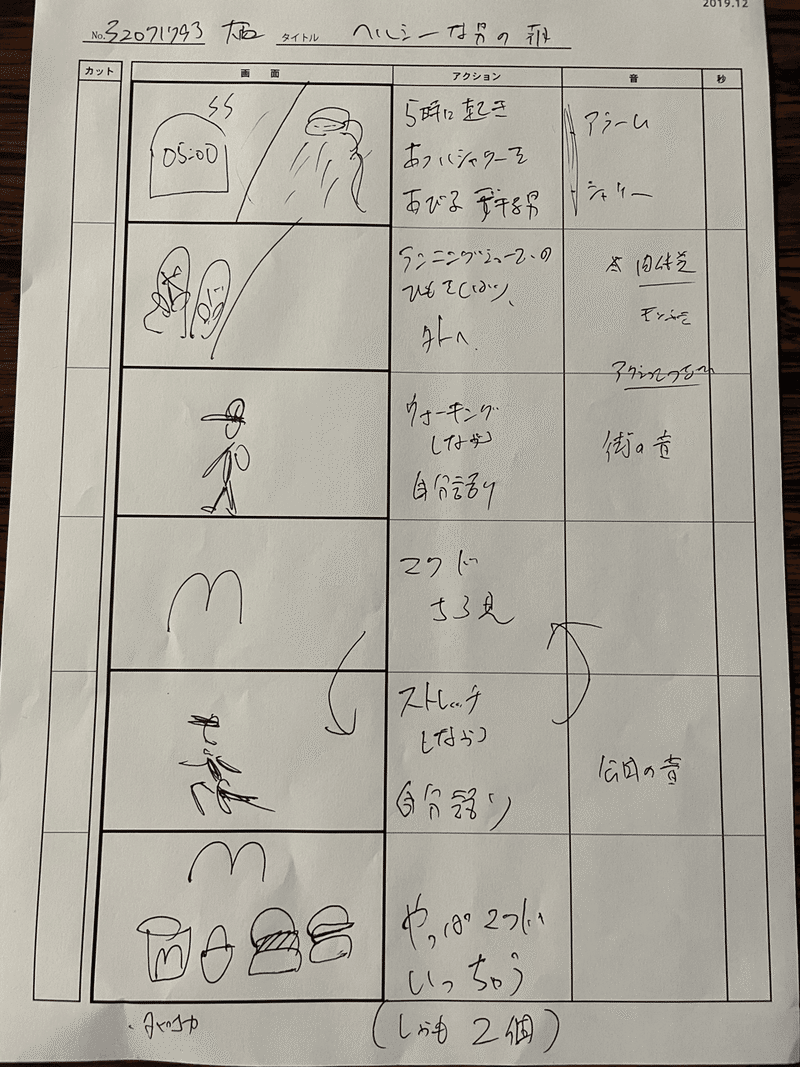 2019.12
No. 32071793 タイトル ヘルシーな男の朝
カット 画面 アクション 音 秒
05:00
5時に起き
あついシャワーを
あびる 男
アラーム
シャワー
ランニングシューズの
ひもをしばり、
外へ
肉体美
ウォーキング
しながら
自分語り
街の音
M
マクド
ちら見
ストレッチ
しながら
自分語り
公園の音
M
M
やっぱマクド
いっちゃう
(しかも 2個)